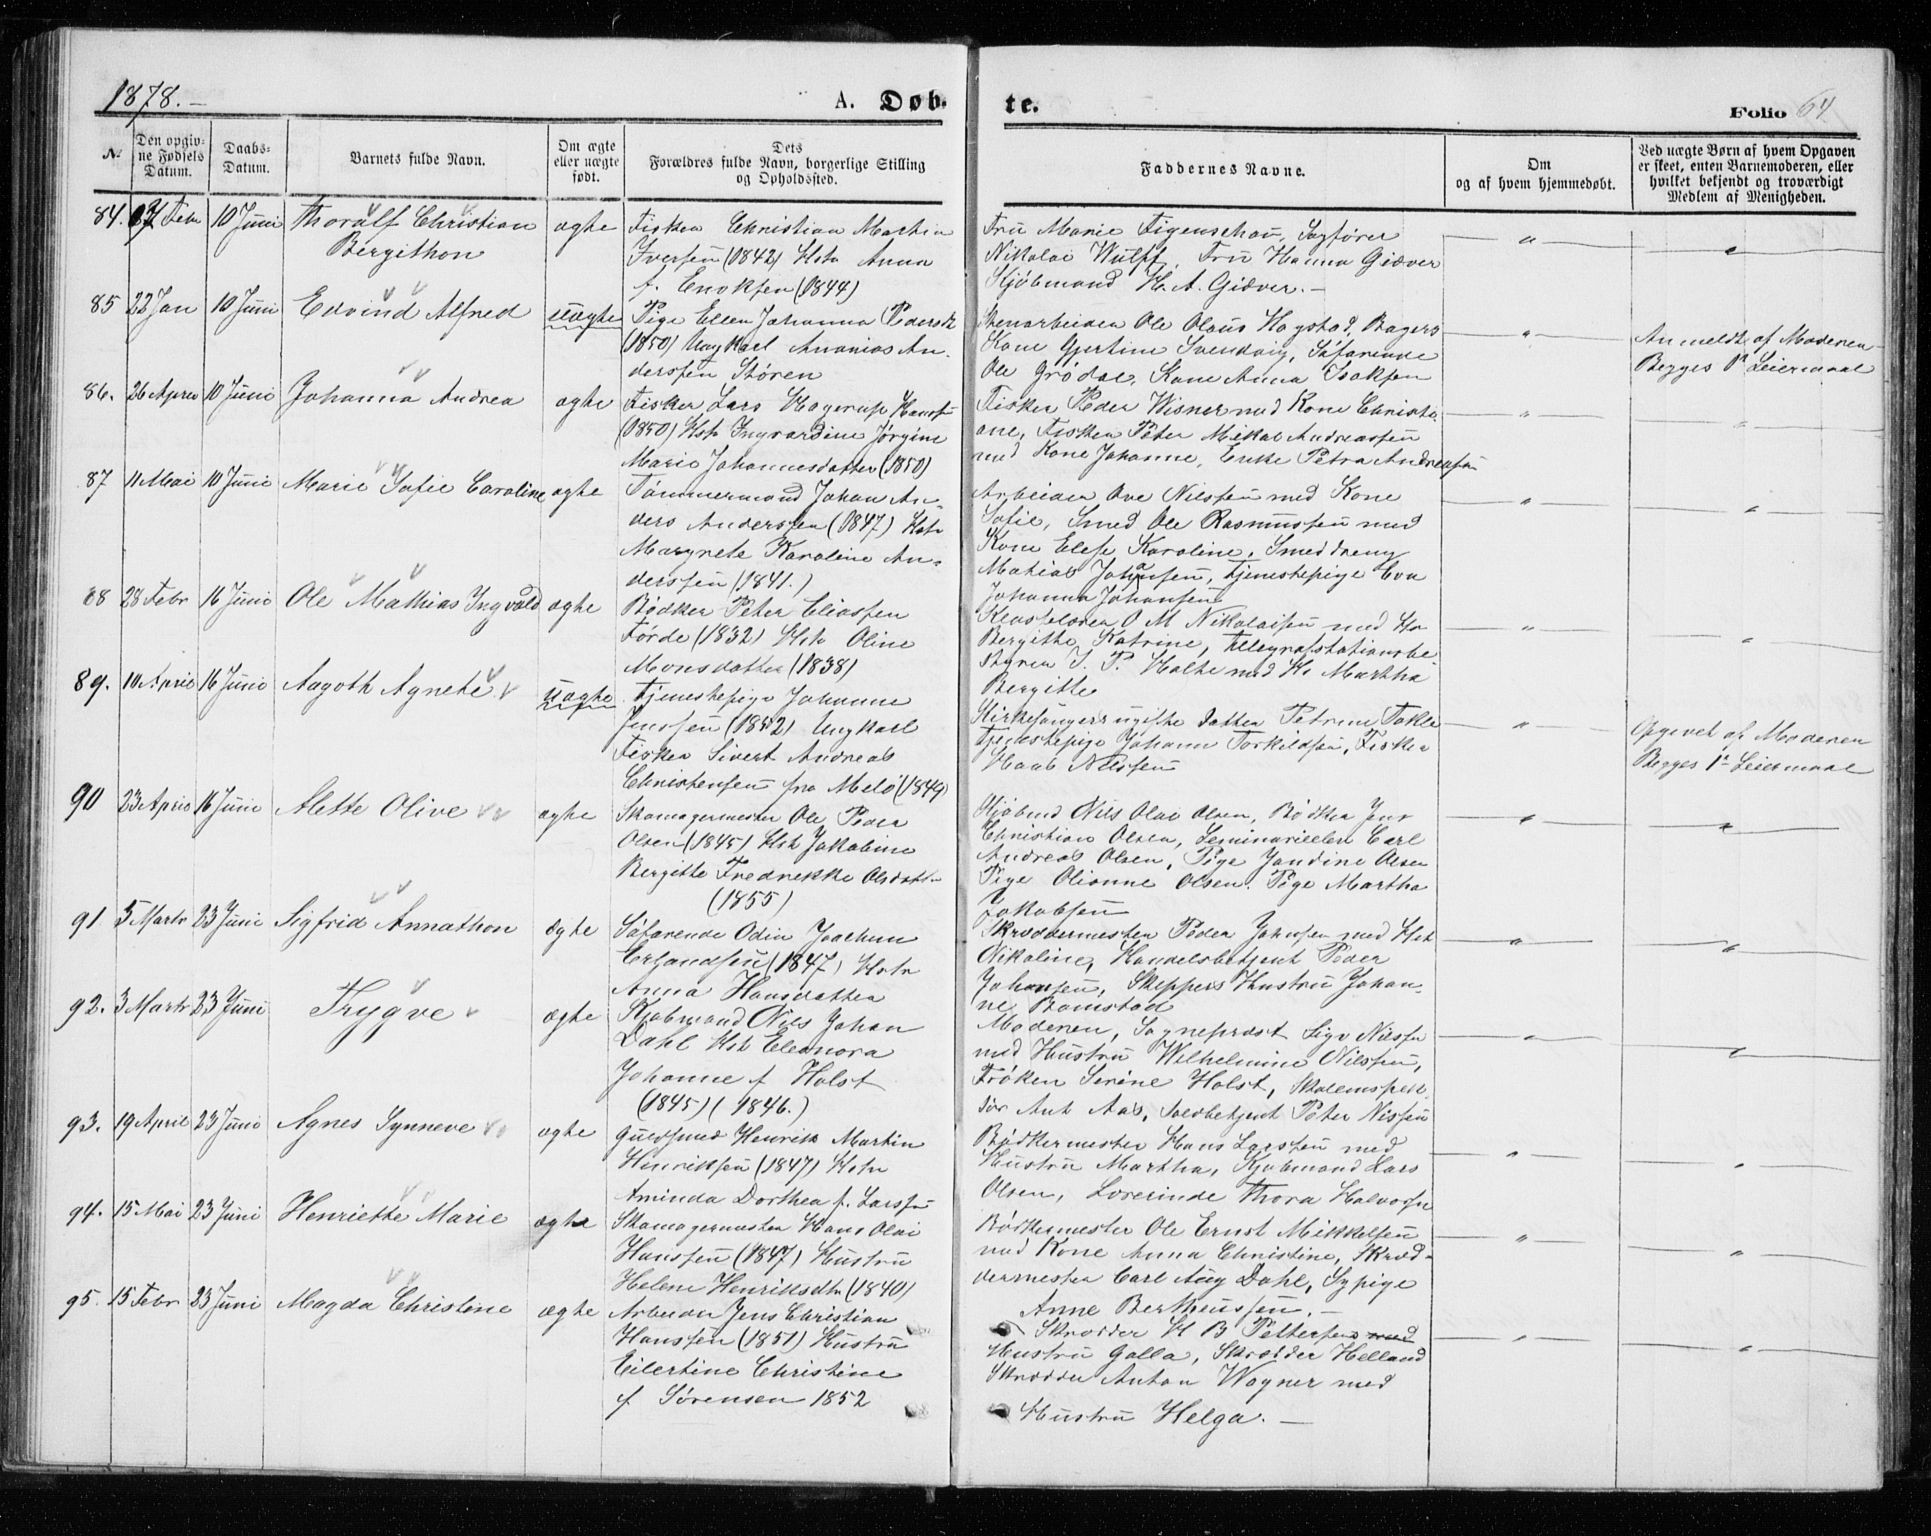 1878.-
A. Døb-
te.
Folio 64
№
Den opgiv-
ne Fødsels
Datum.
Daabs-
Datum.
Barnets fulde Navn.
Om ægte
eller uægte
født.
Dets
Forældres fulde Navn, borgerlige Stilling
og Opholdssted.
Faddernes Navne.
Om
og af hvem hjemmedøbt.
Ved uægte Børn af hvem Opgaven
er skeet, enten Barnemoderen, eller
hvilket bekjendt og troværdigt
Medlem af Menigheden.
84. Febr 10 Juni Thoralf Christian ægte
Bergithon
Fisker Christian Martin
Iversen (1842) Hstr Anna
f. Enoksen (1844)
Fru Marie Figenschau, Sagfører
Nikolai Wulff, Fru Hanna Giæver
Kjøbmand H. A. Giæver.-
85 22 Jan 10 Juni Edvind Alfred uægte
Pige Ellen Johanna Pedersdt
(1850) Ungkarl Ananias An-
derssen Støren
Stenarbeider Ole Olaus Hagstad, Bagers
Kone Gjertine Svendvig, Søfarende
Ole Grødal, Kone Anna Isaksen
Anmeldt af Moderen
Begges 1ste Leiermaal
86. 26 April 10 Juni Johanna Andrea ægte
Fisker Lars Hagerup Hanssen
(1850) Hstr Ingvardine Jørgine
Marie Johannesdatter (1850)
Fisker Peder Wisner med Kone Christi-
ane, Fisker Peter Mikal Andreassen
med Kone Johanne, Enke Petra Andreassen
87 11 Mai 10 Juni Marie Sofie Caroline ægte
Tømmermand Johan An-
ders Anderssen (1847) Hstr
Margrete Karoline An-
derssen (1841.)
Arbeider Ove Nilssen med Kone
Sofie, Smed Ole Rasmussen med
Kone Elese Karoline, Smeddreng
Mathias Johansen, Tjenestepige Eva
Johanna Johansen
88 28 Febr 16 Juni Ole Mathias Ingvald ægte
Bødker Peter Eliassen
Førde (1832) Hstr Oline
Monsdatter (1838)
O M Nikolaisen med Hu
Bergitte Katrine, Telegrafstationsbe
styrer I. P. Holte med Hu Martha
Bergitte
89. 10 April 16 Juni Aagoth Agnete uægte
Tjenestepige Johanne
Jenssen (1852) Ungkarl
Fisker Sivert Andreas
Christensen fra Melø (1849)
Kirkesangers ugifte Datter Petrine Takle
Tjenestepige Johann Torkildsen, Fisker
Nilssen
Opgivet af Moderen
Begges 1ste Leiermaal
90 23 April 16 Juni Alette Olive ægte
Skomagermester Ole Peder
Olsen (1845) Hstr Jakobine
Bergitte Fredrekke Olsdatter
(1855)
Kjøbmd Nils Olai Olsen, Bødker Jens
Christian Olsen, Seminarieelev Carl
Andreas Olsen, Pige Jandine Olsen
Pige Olianne Olsen. Pige Martha
Jakobsen
91 5 Marts 23 Juni Sigfrid Annathon ægte
Søfarende Odin Joachim
Erlandsen (1847) Hstr
Anna Hansdatter
Skræddermester Peder Johnsen med Hstr
Nikoline, Handelsbetjent Peder
Johnsen, Skippers Hustru Johan-
ne Bomstad
92. 3 Marts 23 Juni Trygve ægte
Kjøbmand Nils Johan
Dahl Hstr Eleonora
Johanne f Holst
(1845) (1846.)
Moderen, Sogneprest Sigv Nilssen
med Hustru Wilhelmine Nilssen,
Frøken Serine Holst, Skoleinspek-
tør Ant Aas, Toldbetjent Peter Nissen
93. 19 April 23 Juni Agnes Synneve ægte
Guldsmed Henrik Martin
Henriksen (1847) Hstr
Aminda Dorthea f. Larssen
Bødkermester Hans Larssen med
Hustru Martha, Kjøbmand Lars
Olsen, Lærerinde Thora Halvorsen
94. 15 Mai 23 Juni Henriette Marie ægte
Skomagermester Hans Olai
Hanssen (1847) Hustru
Helene Henriksdtr (1840)
Bødkermester Ole Ernst Mikkelsen
med Kone Anna Christine, Skræd-
dermester Carl Aug Dahl, Sypige
Anne Bertheussen.-
95. 15 Febr 23 Juni Magda Christine ægte
Arbeider Jens Christian
Hanssen (1851) Hustru
Eilertine Christine
f Sørensen 1852
Skrædder H B Pettersen med
Hustru Galla, Skrædder Helland
Skrædder Anton Wagner med
Hustru Helga.-